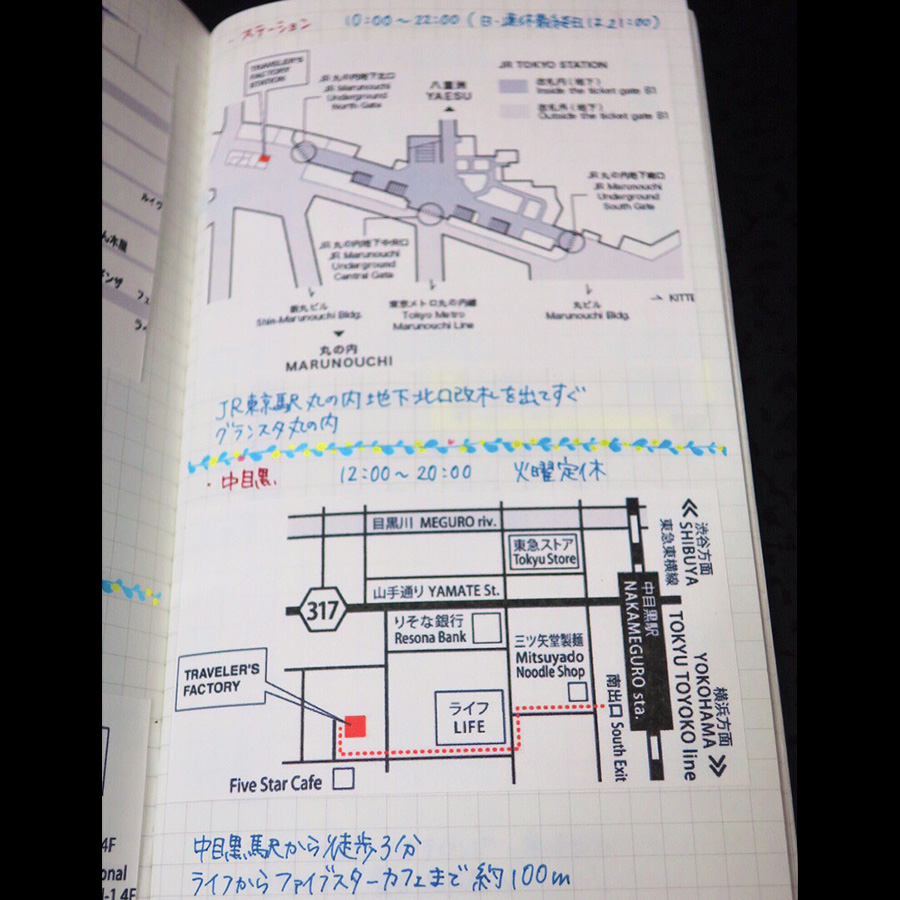 ・ステーション 10:00〜22:00（日・連休最終日は21:00）
TRAVELER'S
FACTORY
STATION
JR 丸の内地下北口
JR Marunouchi
Underground
North Gate
八重洲
YAESU
JR TOKYO STATION
改札内（地下）
Inside the ticket gate B1
改札外（地下）
Outside the ticket gate B1
JR 丸の内地下南口
JR Marunouchi
Underground
South Gate
JR 丸の内地下中央口
JR Marunouchi
Underground
Central Gate
新丸ビル
Shin-Marunouchi Bldg.
東京メトロ丸の内線
Tokyo Metro
Marunouchi Line
丸ビル
Marunouchi Bldg.
→ KITTE
丸の内
MARUNOUCHI
JR東京駅丸の内地下北口改札を出てすぐ
グランスタ丸の内
・中目黒 12:00〜20:00 火曜定休
目黒川 MEGURO riv.
東急ストア
Tokyu Store
山手通り YAMATE St.
317
りそな銀行
Resona Bank
三ツ矢堂製麺
Mitsuyado
Noodle Shop
TRAVELER'S
FACTORY
ライフ
LIFE
Five Star Cafe
南出口 South Exit
中目黒駅
NAKAMEGURO sta.
渋谷方面
SHIBUYA
東急東横線
TOKYU TOYOKO line
横浜方面
YOKOHAMA
中目黒駅から徒歩3分
ライフからファイブスターカフェまで約100m
4F
onal
1-1 4F